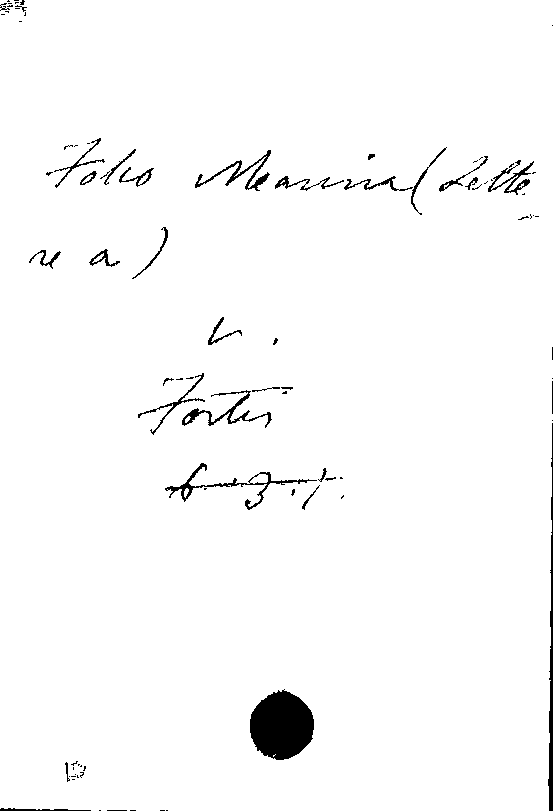 Folio Meanina (Lette_
re a)
v.
Fortis
6.3.1.